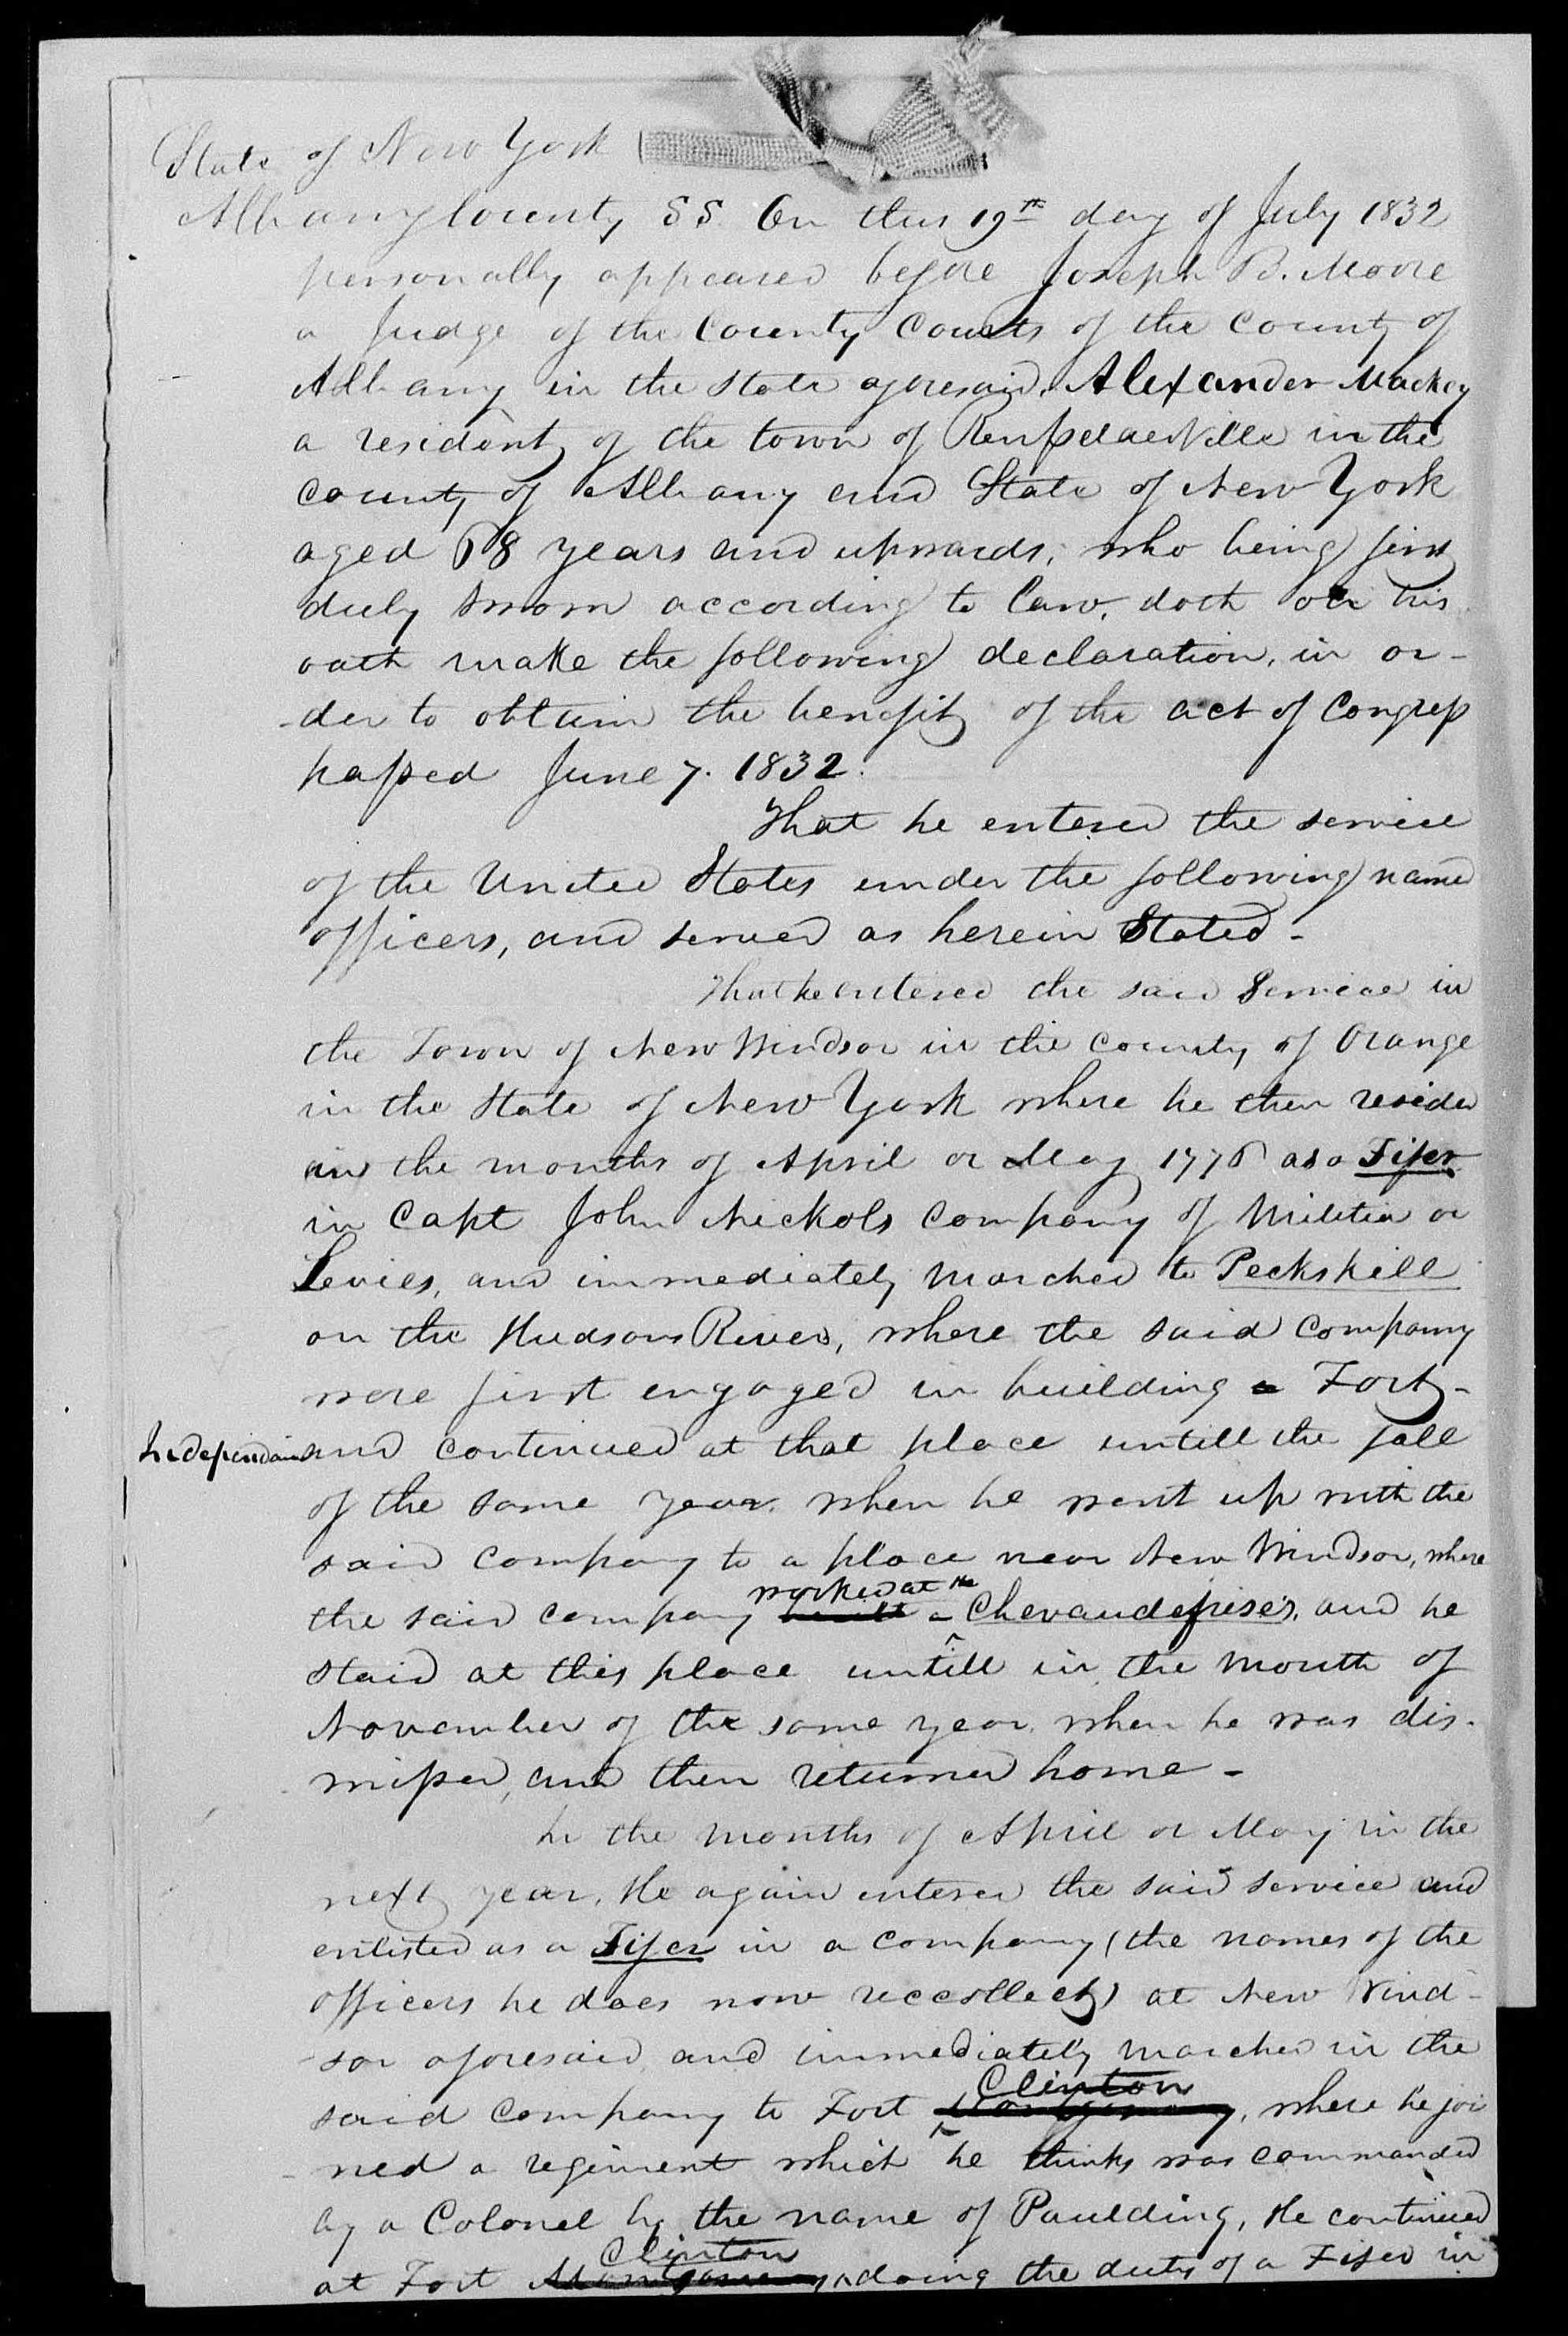 State of New York
Albany County SS. On this 19th day of July 1832
personally appeared before Joseph B. Moore
a Judge of the County Courts of the County of
Albany in the State aforesaid, Alexander Mackey
a resident of the town of Rensselaerville in the
county of Albany and State of New York
aged 68 years and upwards, who being first
duly sworn according to law, doth on his
oath make the following declaration, in or-
-der to obtain the benefit of the act of Congress
passed June 7. 1832.
That he entered the service
of the United States under the following named
officers, and served as herein Stated -
That he entered the said Service in
the Town of New Windsor in the County of Orange
in the State of New York where he then resided
in the months of April or May 1776 as a Fifer
in Capt John Nickols Company of Militia or
Levies, and immediately marched to Peckskill
on the Hudsons River, where the said Company
were first engaged in building a Fort -
Independain and continued at that place untill the fall
of the same year. when he went up with the
said Company to a place near New Windsor, where
worked at the
the said company built a Chevaudefrises, and he
staid at this place untill in the Month of
November of the same year, when he was dis-
missed, and then returned home -
In the months of April or May in the
next year, He again entered the said service and
enlisted as a Fifer in a company (the names of the
officers he does now reccollect) at New Wind-
-sor aforesaid and immediately marched in the
Clinton
said company to Fort Montgomery, where he joi
-ned a regiment which he thinks was commanded
by a Colonel by the name of Paulding, He continued
Clinton
at Fort Montgomery doing the duty of a Fifer in